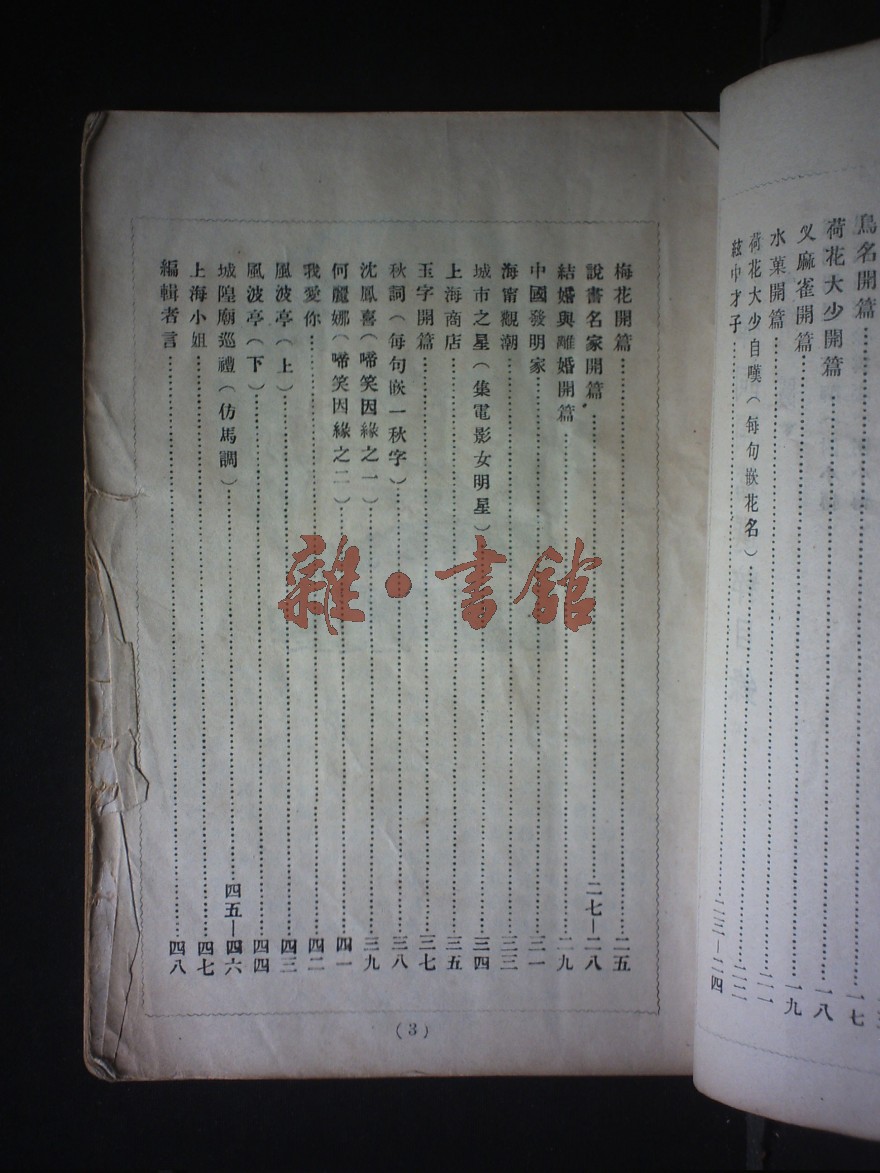 鳥名開篇……一七
荷花大少開篇……一八
叉麻雀開篇……一九
水菓開篇……二一
荷花大少自嘆(每句嵌花名)……二二
絃中才子……二三—二四
梅花開篇……二五
說書名家開篇……二七—二八
結婚與離婚開篇……二九
中國發明家……三一
海甯觀潮……三三
城市之星(集電影女明星)……三四
上海商店……三五
玉字開篇……三七
秋詞(每句嵌一秋字)……三八
沈鳳喜(啼笑因緣之一)……三九
何麗娜(啼笑因緣之二)……四一
我愛你……四二
風波亭(上)……四三
風波亭(下)……四四
城隍廟巡禮(仿馬調)……四五—四六
上海小姐……四七
編輯者言……四八
(3)
雜·書館